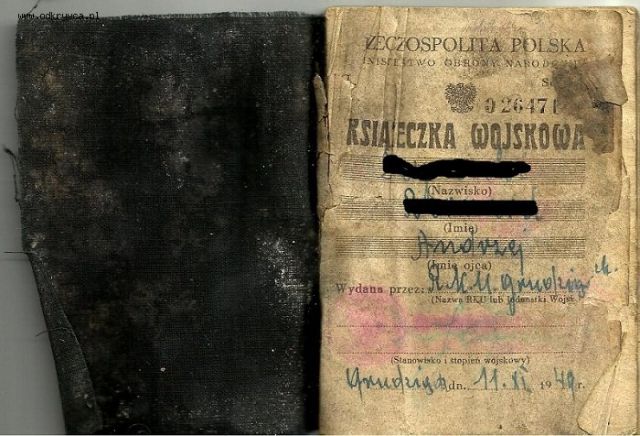 www.odkrywca.pl
RZECZOSPOLITA POLSKA
MINISTERSTWO OBRONY NARODOWEJ
026471
KSIĄŻECZKA WOJSKOWA
(Nazwisko)
(Imię)
Andrzej
(Imię ojca)
Wydana przez: R.K.U. Grudziądz
(Nazwa RKU lub Jednostki Wojsk.
(Stanowisko i stopień wojskowy)
Grudziądz dn. 11.XI 1949 r.